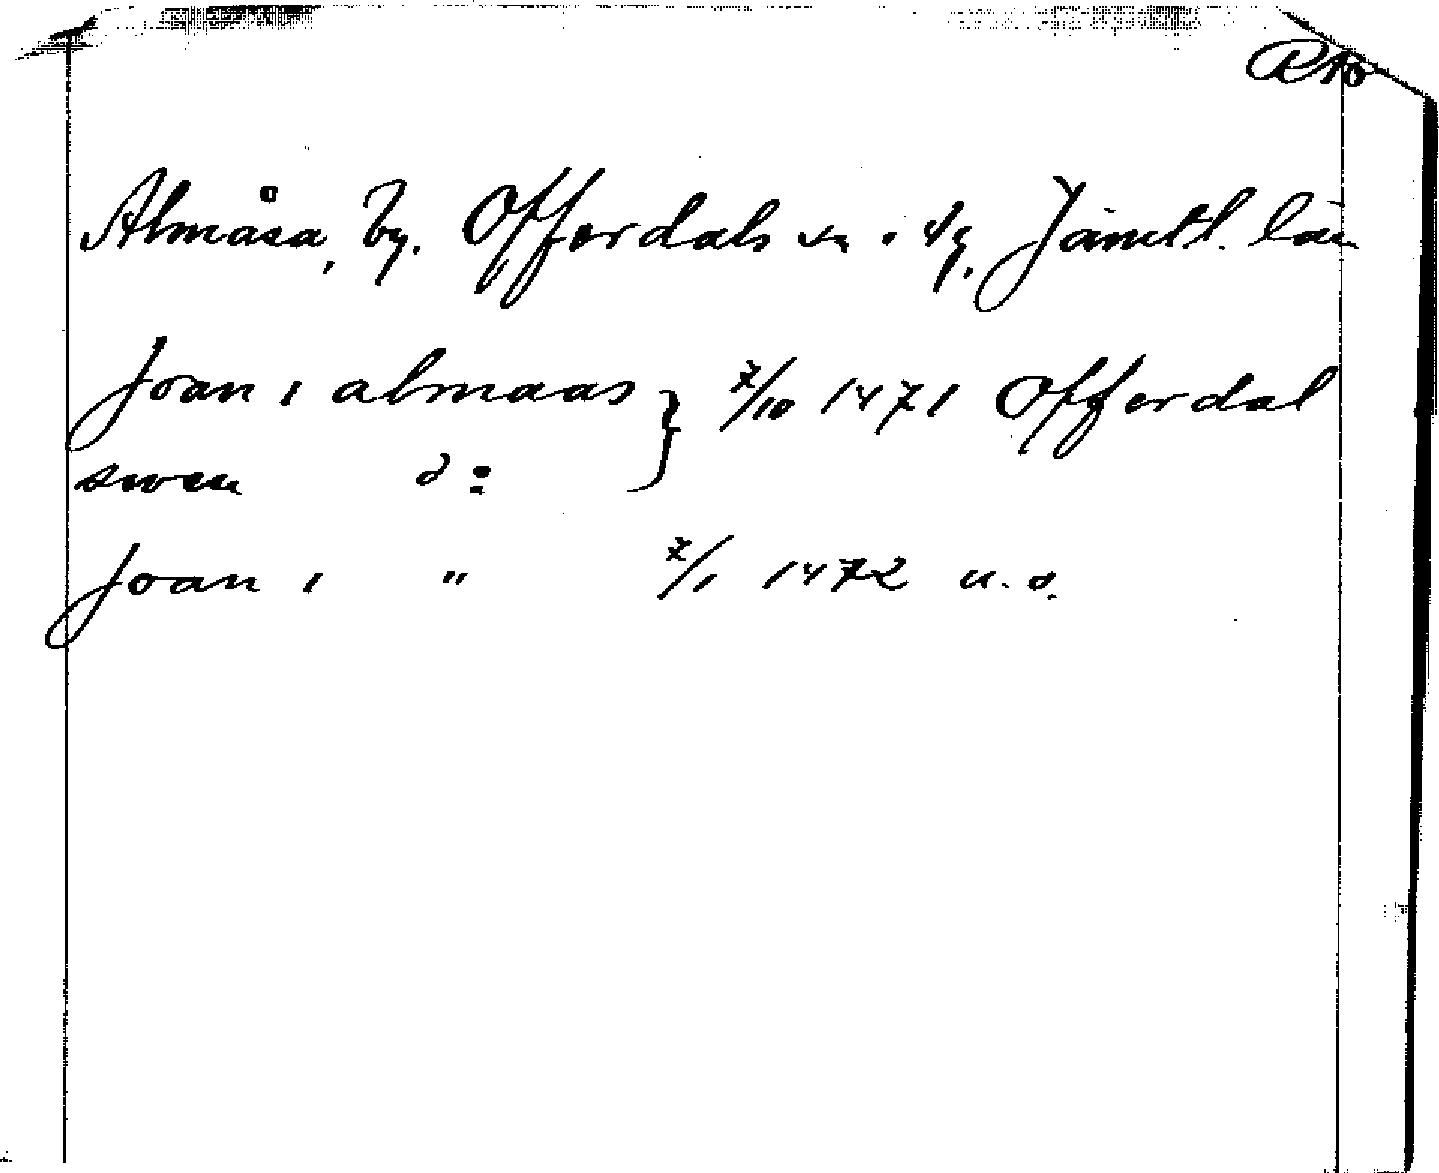 Räb
Almåsa, by. Offerdals sn. o. tg. Jämtl. län
Joan i almaas } 7/10 1471 Offerdal
swen d:
Joan i " 7/1 1472 u. o.